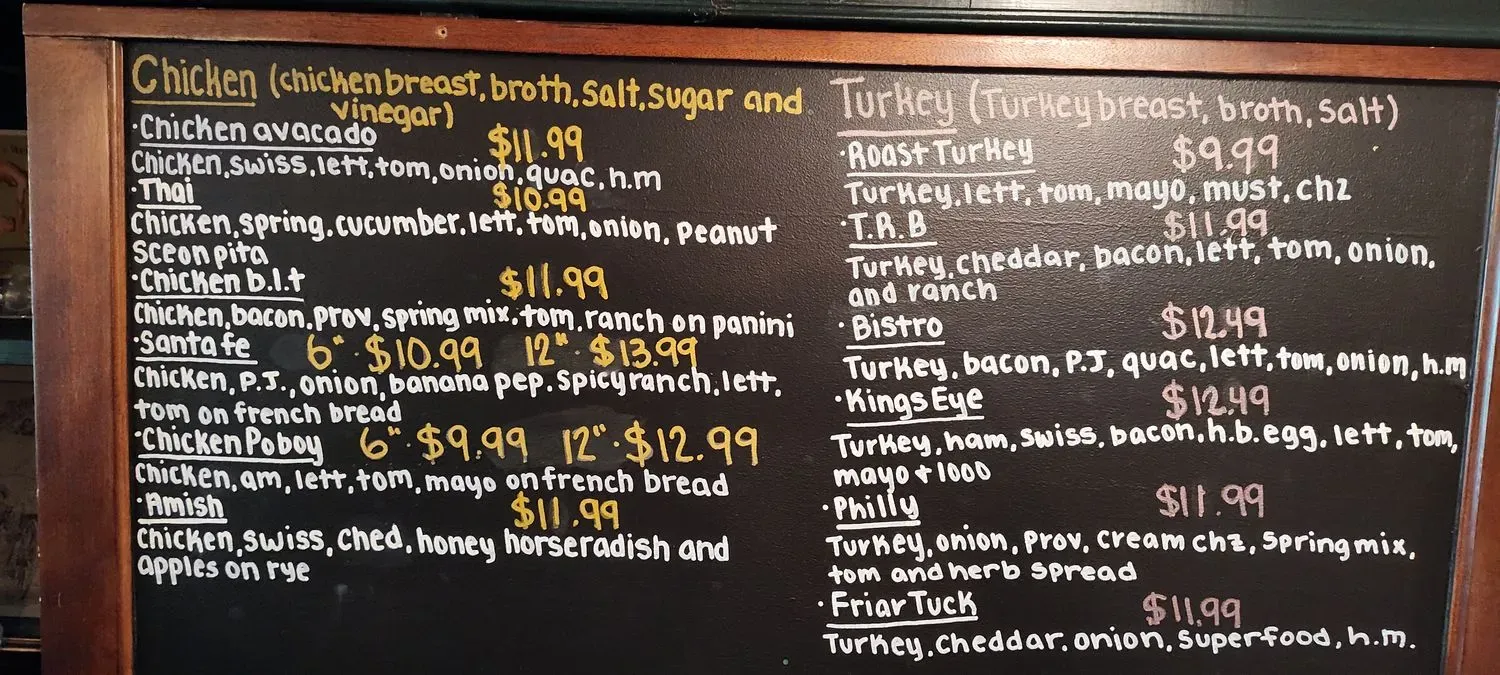 Chicken (chicken breast, broth, salt, sugar and
vinegar)
·Chicken avacado $11.99
Chicken, swiss, lett, tom, onion, quac, h.m
·Thai $10.99
Chicken, spring, cucumber, lett, tom, onion, peanut
sce on pita
·Chicken b.l.t $11.99
Chicken, bacon, prov, spring mix, tom, ranch on panini
·Santa fe 6"·$10.99 12"·$13.99
Chicken, P.J., onion, banana pep, spicy ranch, lett,
tom on french bread
·Chicken Poboy 6"·$9.99 12"·$12.99
Chicken, am, lett, tom, mayo on french bread
·Amish $11.99
Chicken, swiss, ched, honey horseradish and
apples on rye
Turkey (Turkey breast, broth, salt)
·Roast Turkey $9.99
Turkey, lett, tom, mayo, must, chz
·T.R.B $11.99
Turkey, cheddar, bacon, lett, tom, onion,
and ranch
·Bistro $12.49
Turkey, bacon, P.J, quac, lett, tom, onion, h.m
·Kings Eye $12.49
Turkey, ham, swiss, bacon, h.b. egg, lett, tom,
mayo + 1000
·Philly $11.99
Turkey, onion, prov, cream chz, spring mix,
tom and herb spread
·Friar Tuck $11.99
Turkey, cheddar, onion, superfood, h.m.